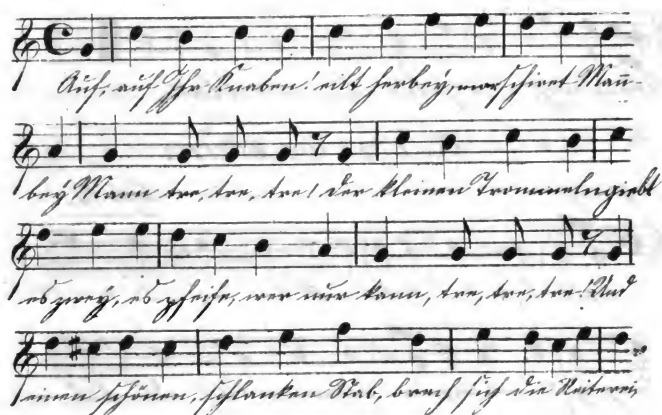 Auf, auf Ihr Knaben! eilt herbey, marschiret Mann
bey Mann tre, tre, tre! der kleinen Trommeln giebt
es zwey, es pfeife, wer nur kann, tre, tre, tre! Und
einen schönen, schlanken Stab, brech sich die Reiterei